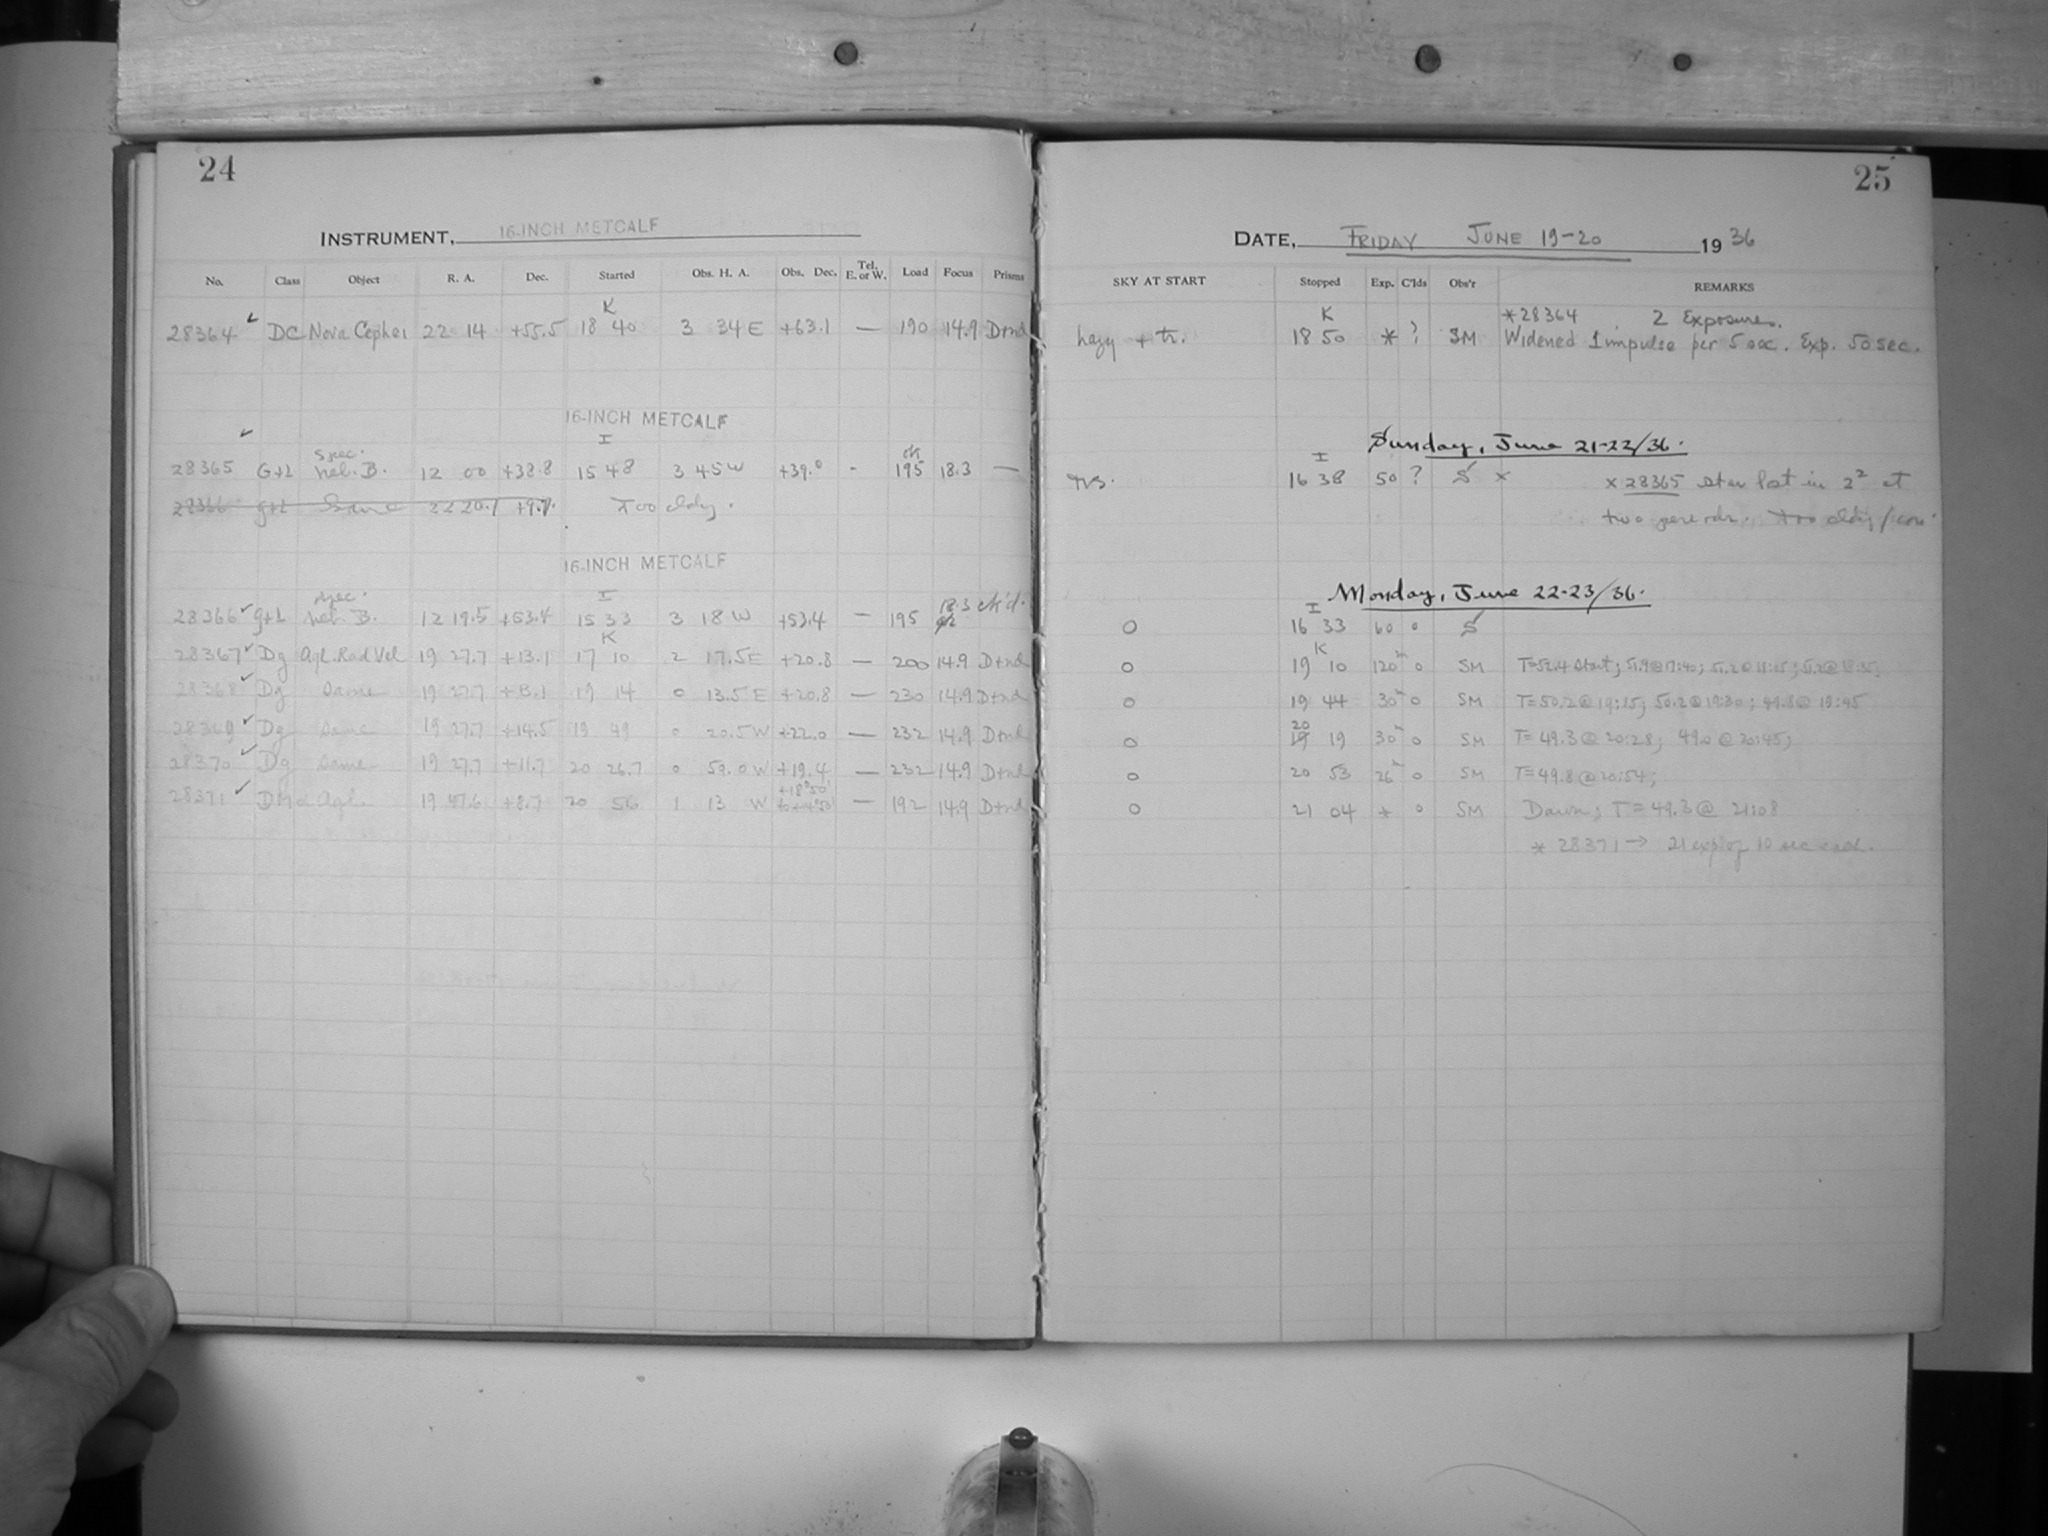 24
INSTRUMENT, 16-INCH METCALF
No. Class Object R. A. Dec. Started Obs. H. A. Obs. Dec. Tel. E. or W. Load Focus Prisms
K
28364 ✓ DC Nova Cephei 22 14 +55.5 18 40 3 34 E +63.1 — 190 14.9 D+nd
16-INCH METCALF
✓ I
spec. ok
28365 G+L neb. B. 12 00 +38.8 15 48 3 45 W +39.0 - 195 18.3 —
28366 g+L Same +9.1 Too cldy.
16-INCH METCALF
spec. I 18.3 ck'd.
28366 ✓ g+L neb. B. 12 19.5 +53.4 15 33 3 18 W +53.4 — 195
K
28367 ✓ Dg Aql. Rad Vel 19 27.7 +13.1 17 10 2 17.5 E +20.8 — 200 14.9 D+nd
28368 ✓ Dg Same 19 27.7 +13.1 19 14 0 13.5 E +20.8 — 230 14.9 D+nd
28369 ✓ Dg Same 19 27.7 +14.5 19 49 0 20.5 W +22.0 — 232 14.9 D+nd
28370 ✓ Dg Same 19 27.7 +11.7 20 26.7 0 59.0 W +19.4 — 232 14.9 D+nd
28371 ✓ Aql. 19 47.6 +8.7 20 56 1 13 W +18°50' — 192 14.9 D+nd
25
DATE, FRIDAY JUNE 19-20 1936
SKY AT START Stopped Exp. C'lds Obs'r REMARKS
K *28364 2 Exposures.
hazy + tr. 18 50 * ? SM Widened 1 impulse per 5 sec. Exp. 50 sec.
Sunday, June 21-22/36.
I
16 38 50 ? S × × 28365 star lost in 2² at
two periods. Too cldy/
Monday, June 22-23/36.
I
O 16 33 60 0 S
K
O 19 10 120m 0 SM T=52.4 start; 51.9@17:40;
O 19 44 30m 0 SM T=50.2@19:15; 50.2@19:30; 49.8@19:45
20
O 19 19 30m 0 SM T=49.3@20:28; 49.0@20:45;
O 20 53 26m 0 SM T=49.8@20:54;
O 21 04 * 0 SM Dawn; T=49.3@21:08
* 28371 → 21 exp of 10 sec each.